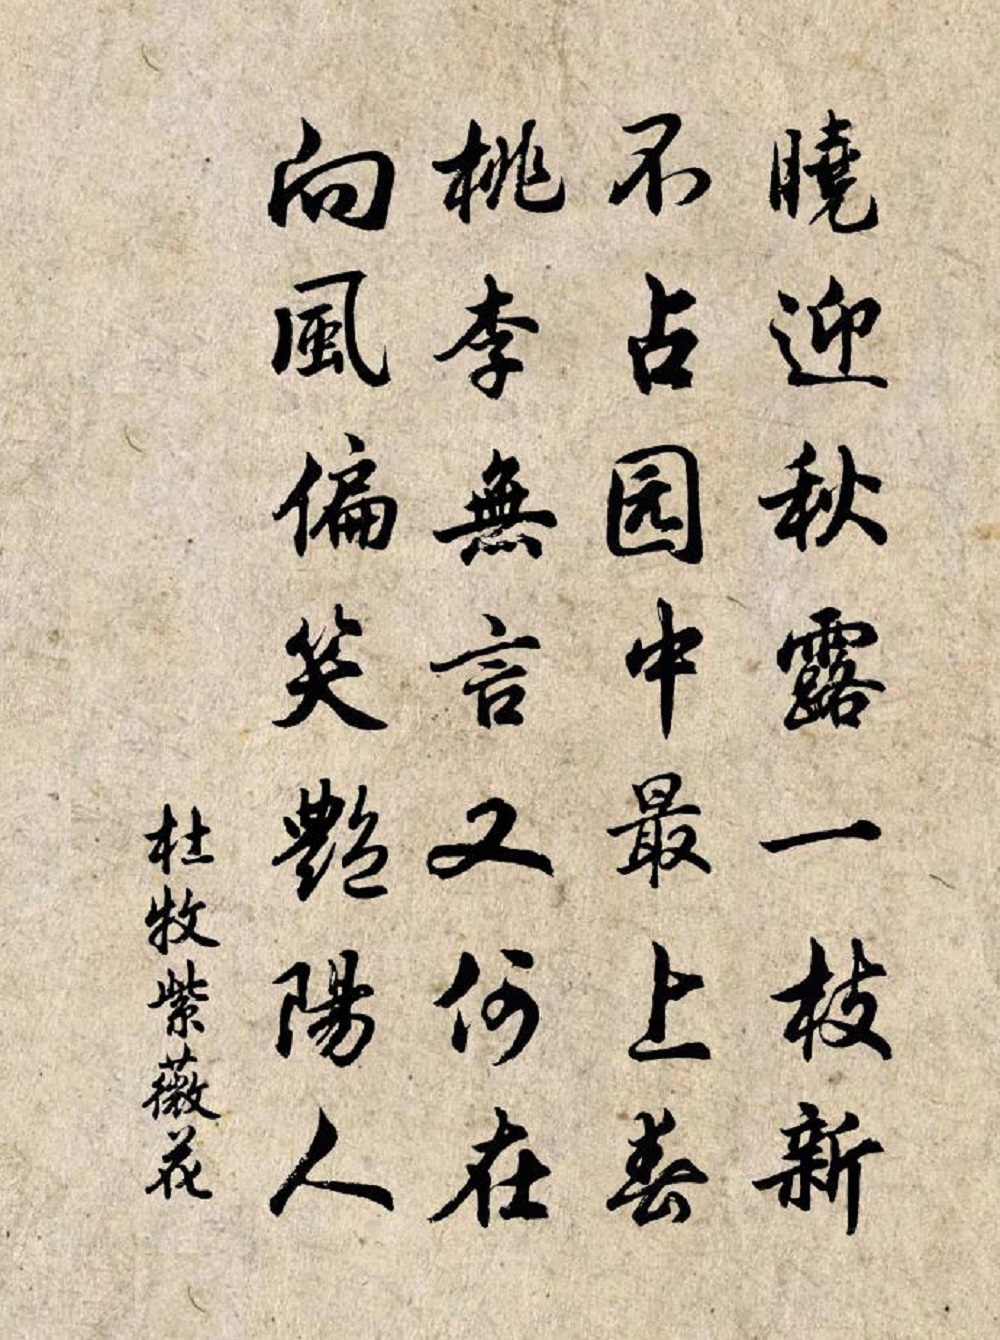 曉迎秋露一枝新
不占园中最上春
桃李無言又何在
向風偏笑艷陽人
杜牧紫薇花